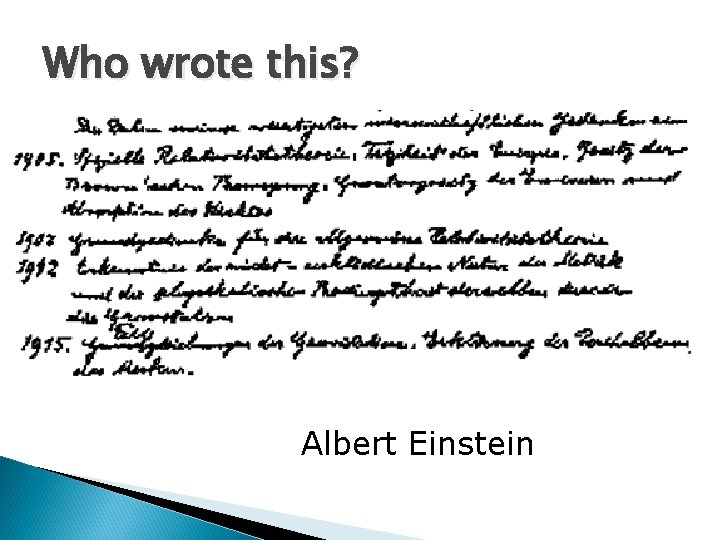 Who wrote this?
Die Daten meiner wichtigsten wissenschaftlichen Gedanken
1905. Spezielle Relativitätstheorie, Trägheit der Energie, Gesetz der
Brown'schen Bewegung, Quantengesetz der Emission und
Absorption des Lichtes
1907 Grundgedanke für die allgemeine Relativitätstheorie
1912 Erkenntnis der nicht-euklidischen Natur der Metrik
und der physikalischen derselben durch
die Gravitation
1915. Feldgleichungen der Gravitation. Erklärung der Perihelbewegung
des Merkur.
Albert Einstein